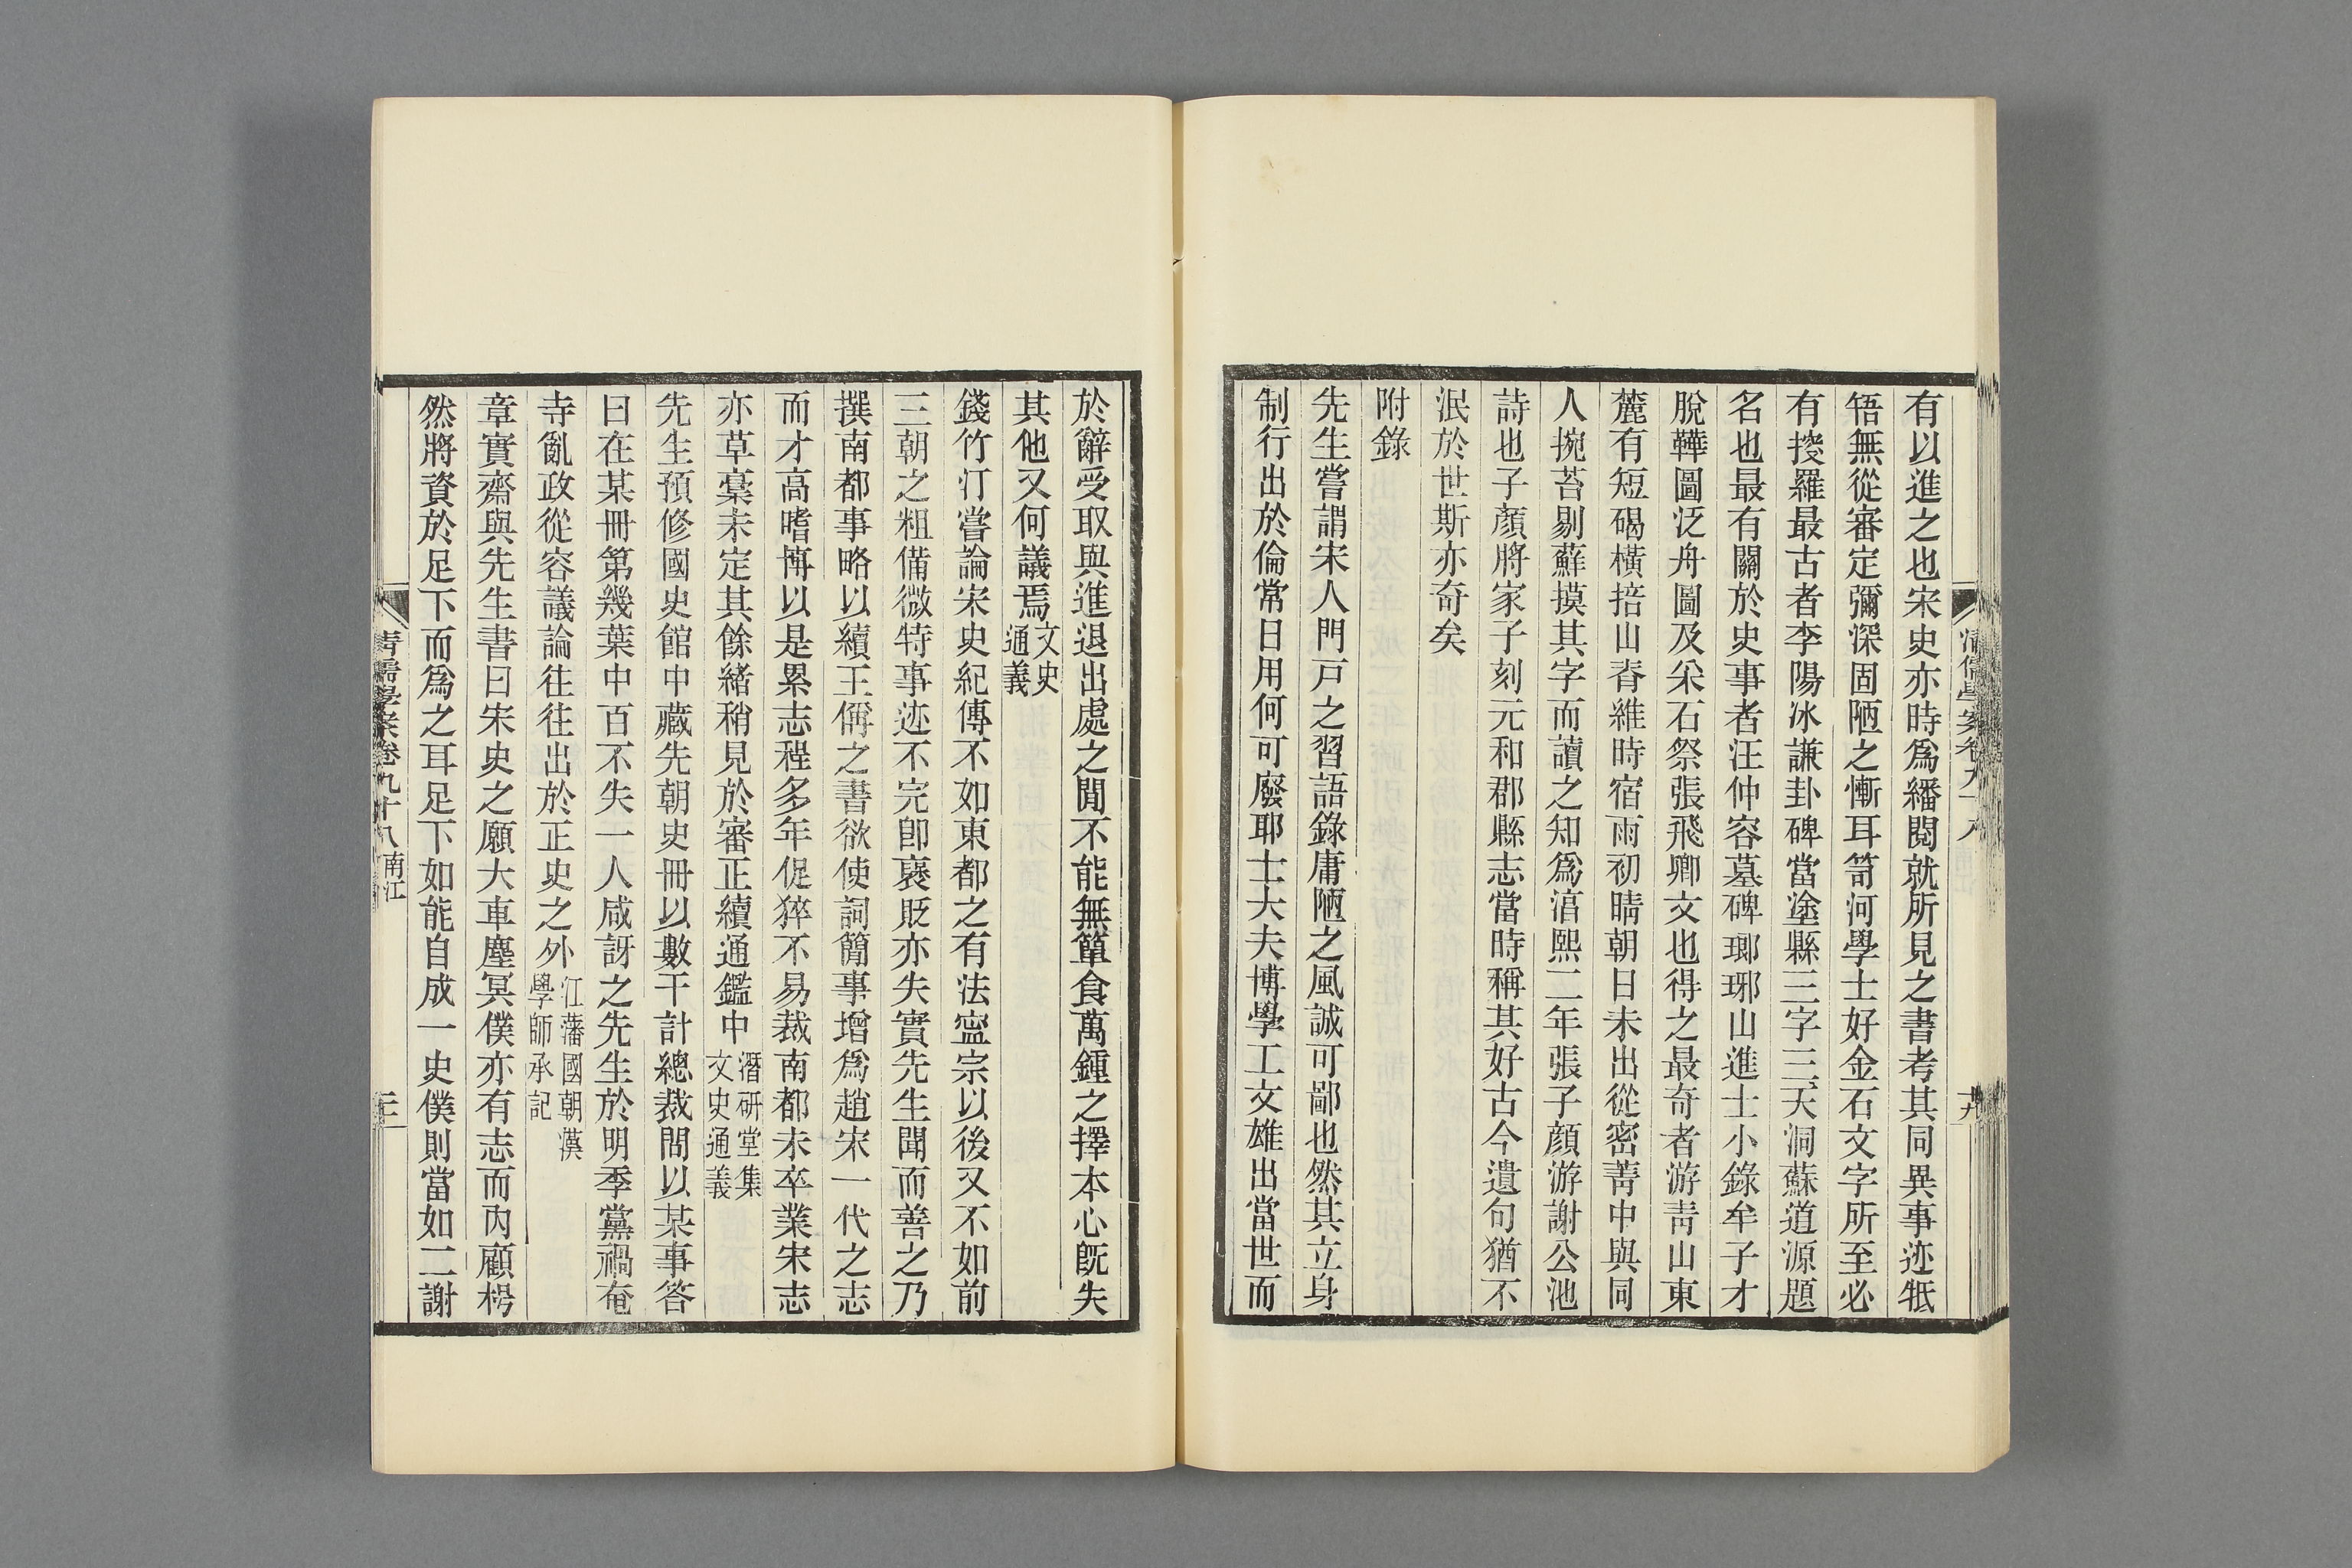 清儒學案卷九十八
十九
有以進之也宋史亦時爲繙閱就所見之書考其同異事迹牴
牾無從審定彌深固陋之慚耳笥河學士好金石文字所至必
有搜羅最古者李陽冰謙卦碑當塗縣三字三天洞蘇道源題
名也最有關於史事者汪仲容墓碑瑯琊山進士小錄牟子才
脫鞾圖泛舟圖及采石祭張飛卿文也得之最奇者游靑山東
麓有短碣橫掊山脊維時宿雨初晴朝日未出從密菁中與同
人捥苔剔蘚摸其字而讀之知爲淳熙二年張子顏游謝公池
詩也子顏將家子刻元和郡縣志當時稱其好古今遺句猶不
泯於世斯亦奇矣
附錄
先生嘗謂宋人門戸之習語錄庸陋之風誠可鄙也然其立身
制行出於倫常日用何可廢耶士大夫博學工文雄出當世而
於辭受取與進退出處之閒不能無簞食萬鍾之擇本心旣失
其他又何議焉文史
通義
錢竹汀嘗論宋史紀傳不如東都之有法寍宗以後又不如前
三朝之粗備微特事迹不完卽襃貶亦失實先生聞而善之乃
撰南都事略以續王偁之書欲使詞簡事增爲趙宋一代之志
而才高嗜博以是累志程多年促猝不易裁南都未卒業宋志
亦草稾未定其餘緒稍見於審正續通鑑中潛硏堂集
文史通義
先生預修國史館中藏先朝史冊以數千計總裁問以某事答
曰在某冊第幾葉中百不失一人咸訝之先生於明季黨禍奄
寺亂政從容議論往往出於正史之外江藩國朝漢
學師承記
章實齋與先生書曰宋史之願大車塵冥僕亦有志而內顧枵
然將資於足下而爲之耳足下如能自成一史僕則當如二謝
清儒學案卷九十八 南江
二十